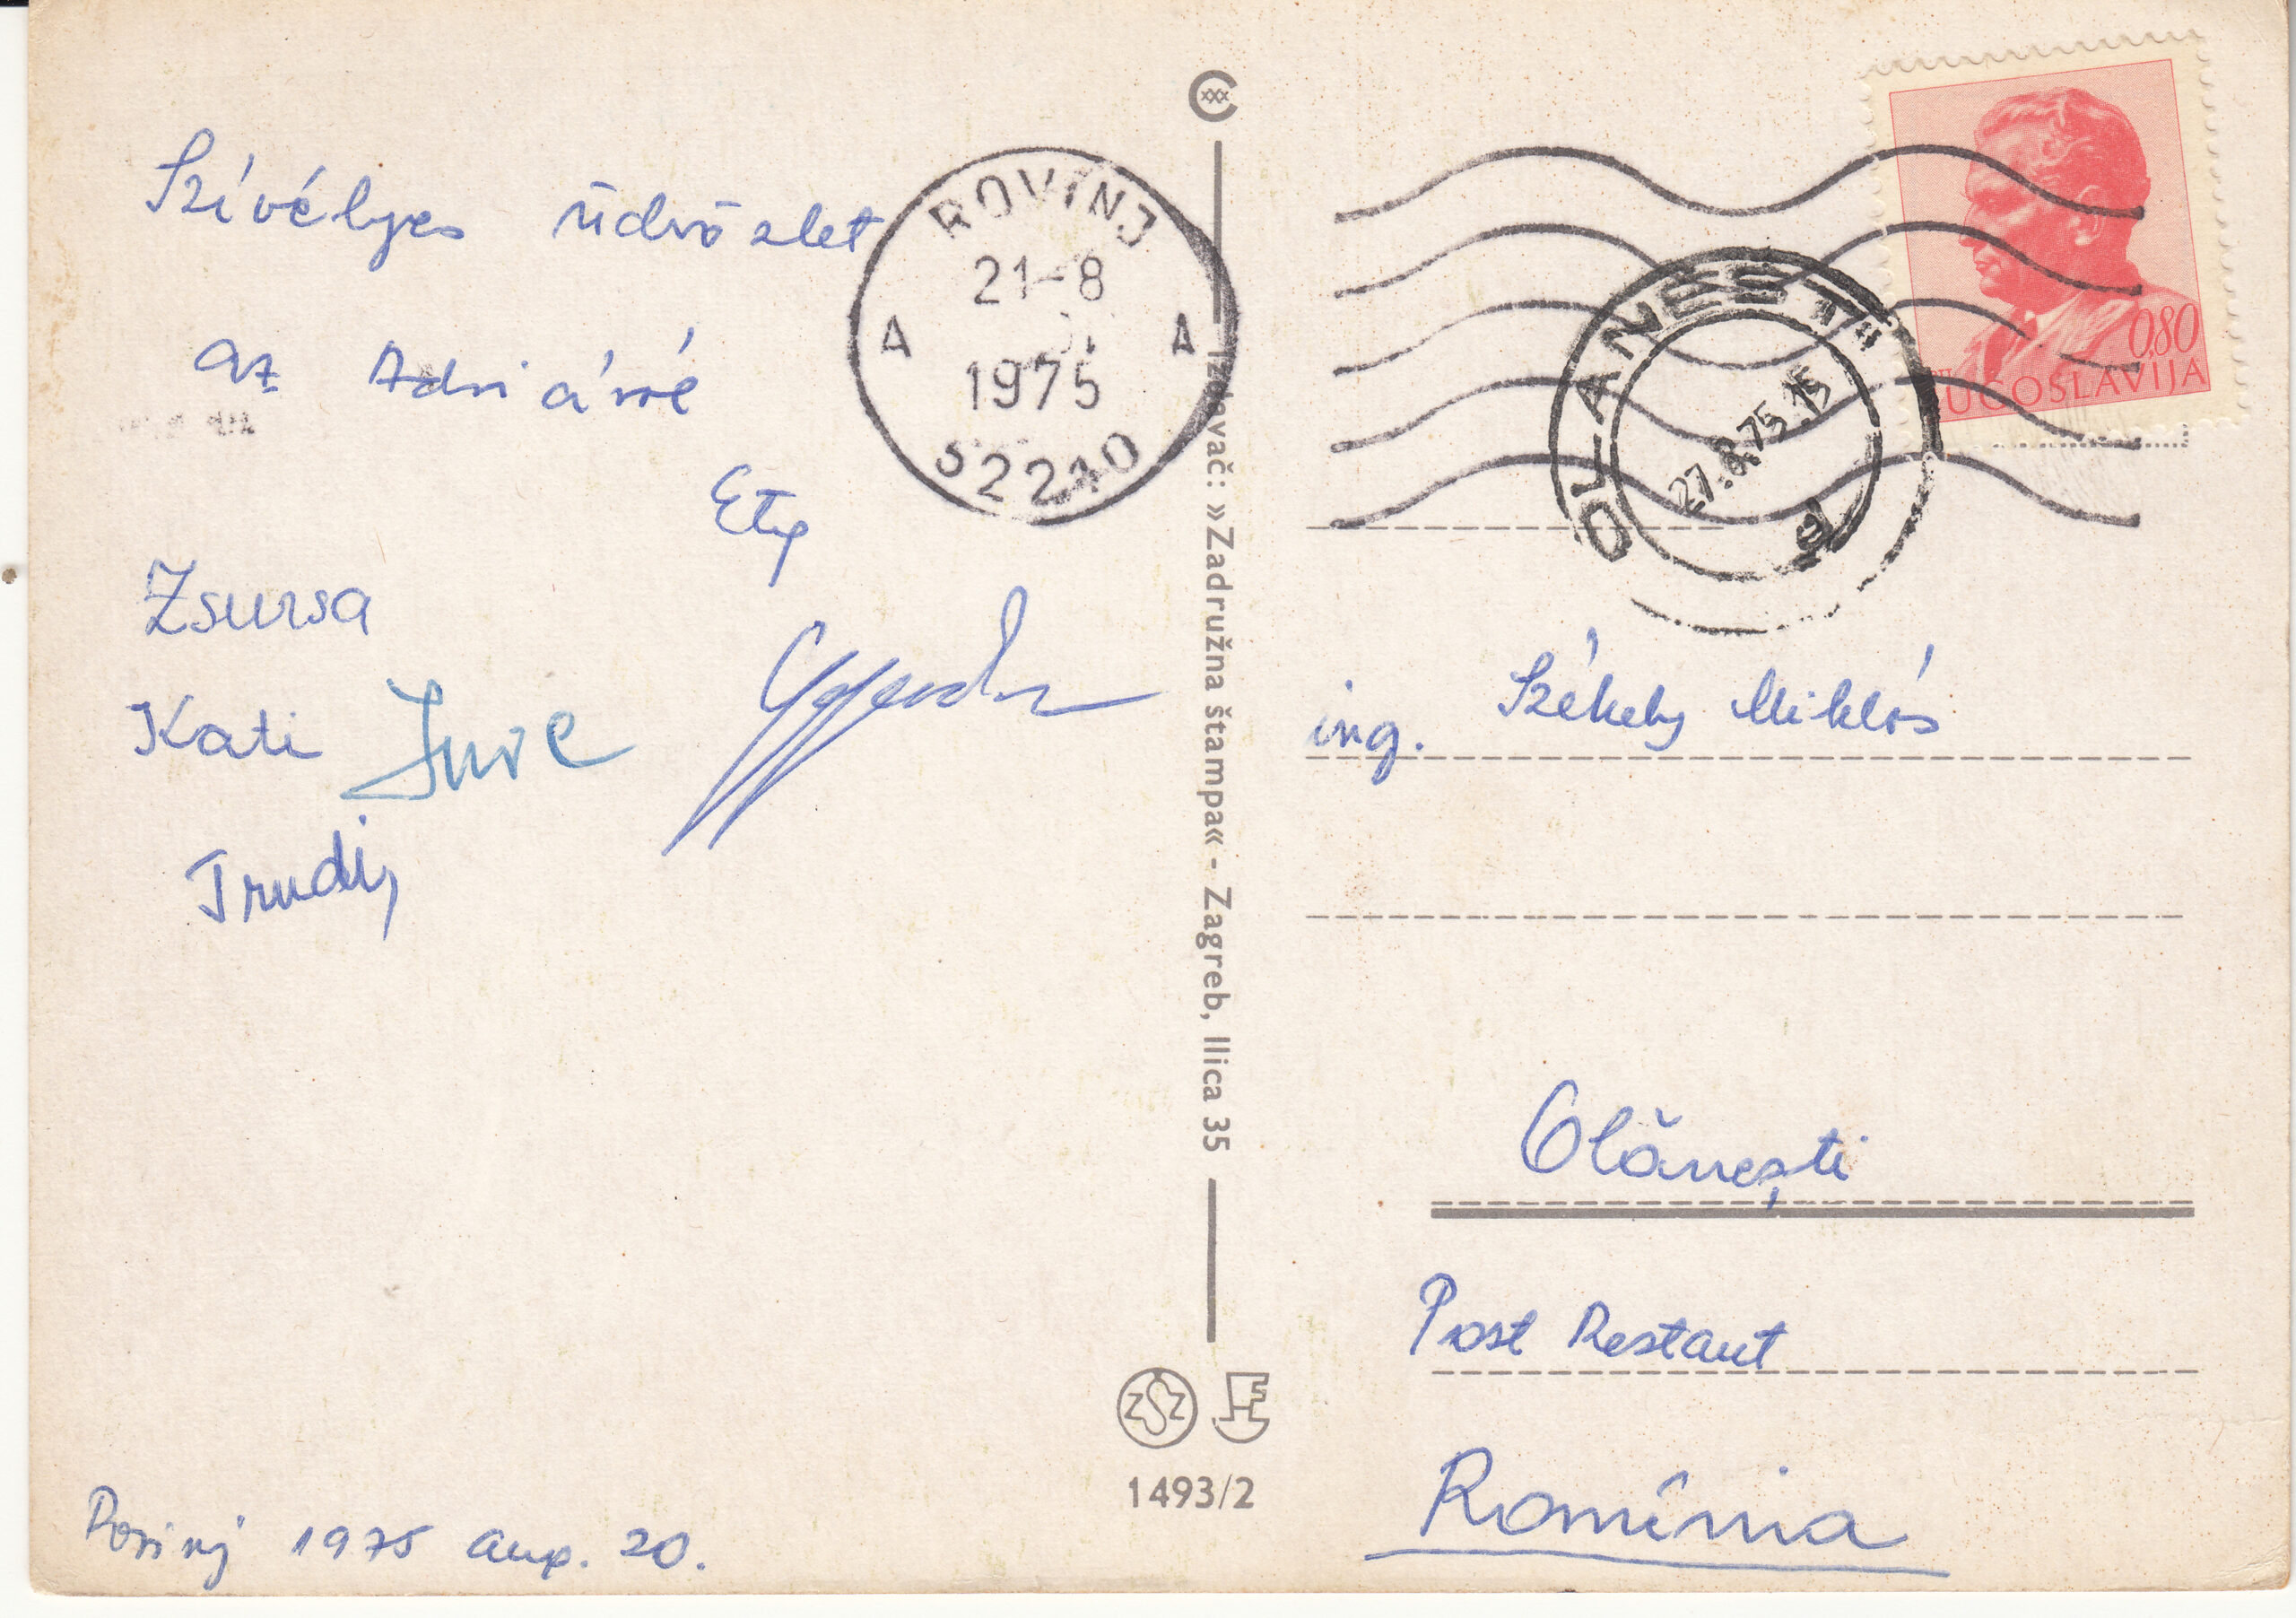 Szívélyes üdvözlet
az Adriáról
Ety
Zsuzsa
Kati
Imre
Trudy
Rovinj 1975 aug. 20.
ROVINJ
21-8
1975
A A
52210
Izdavač: »Zadružna štampa« - Zagreb, Ilica 35
ZSZ
1493/2
0,80
JUGOSLAVIJA
OLANESTI
27.8.75.15
ing. Székely Miklós
Olănești
Post Restant
Romînia